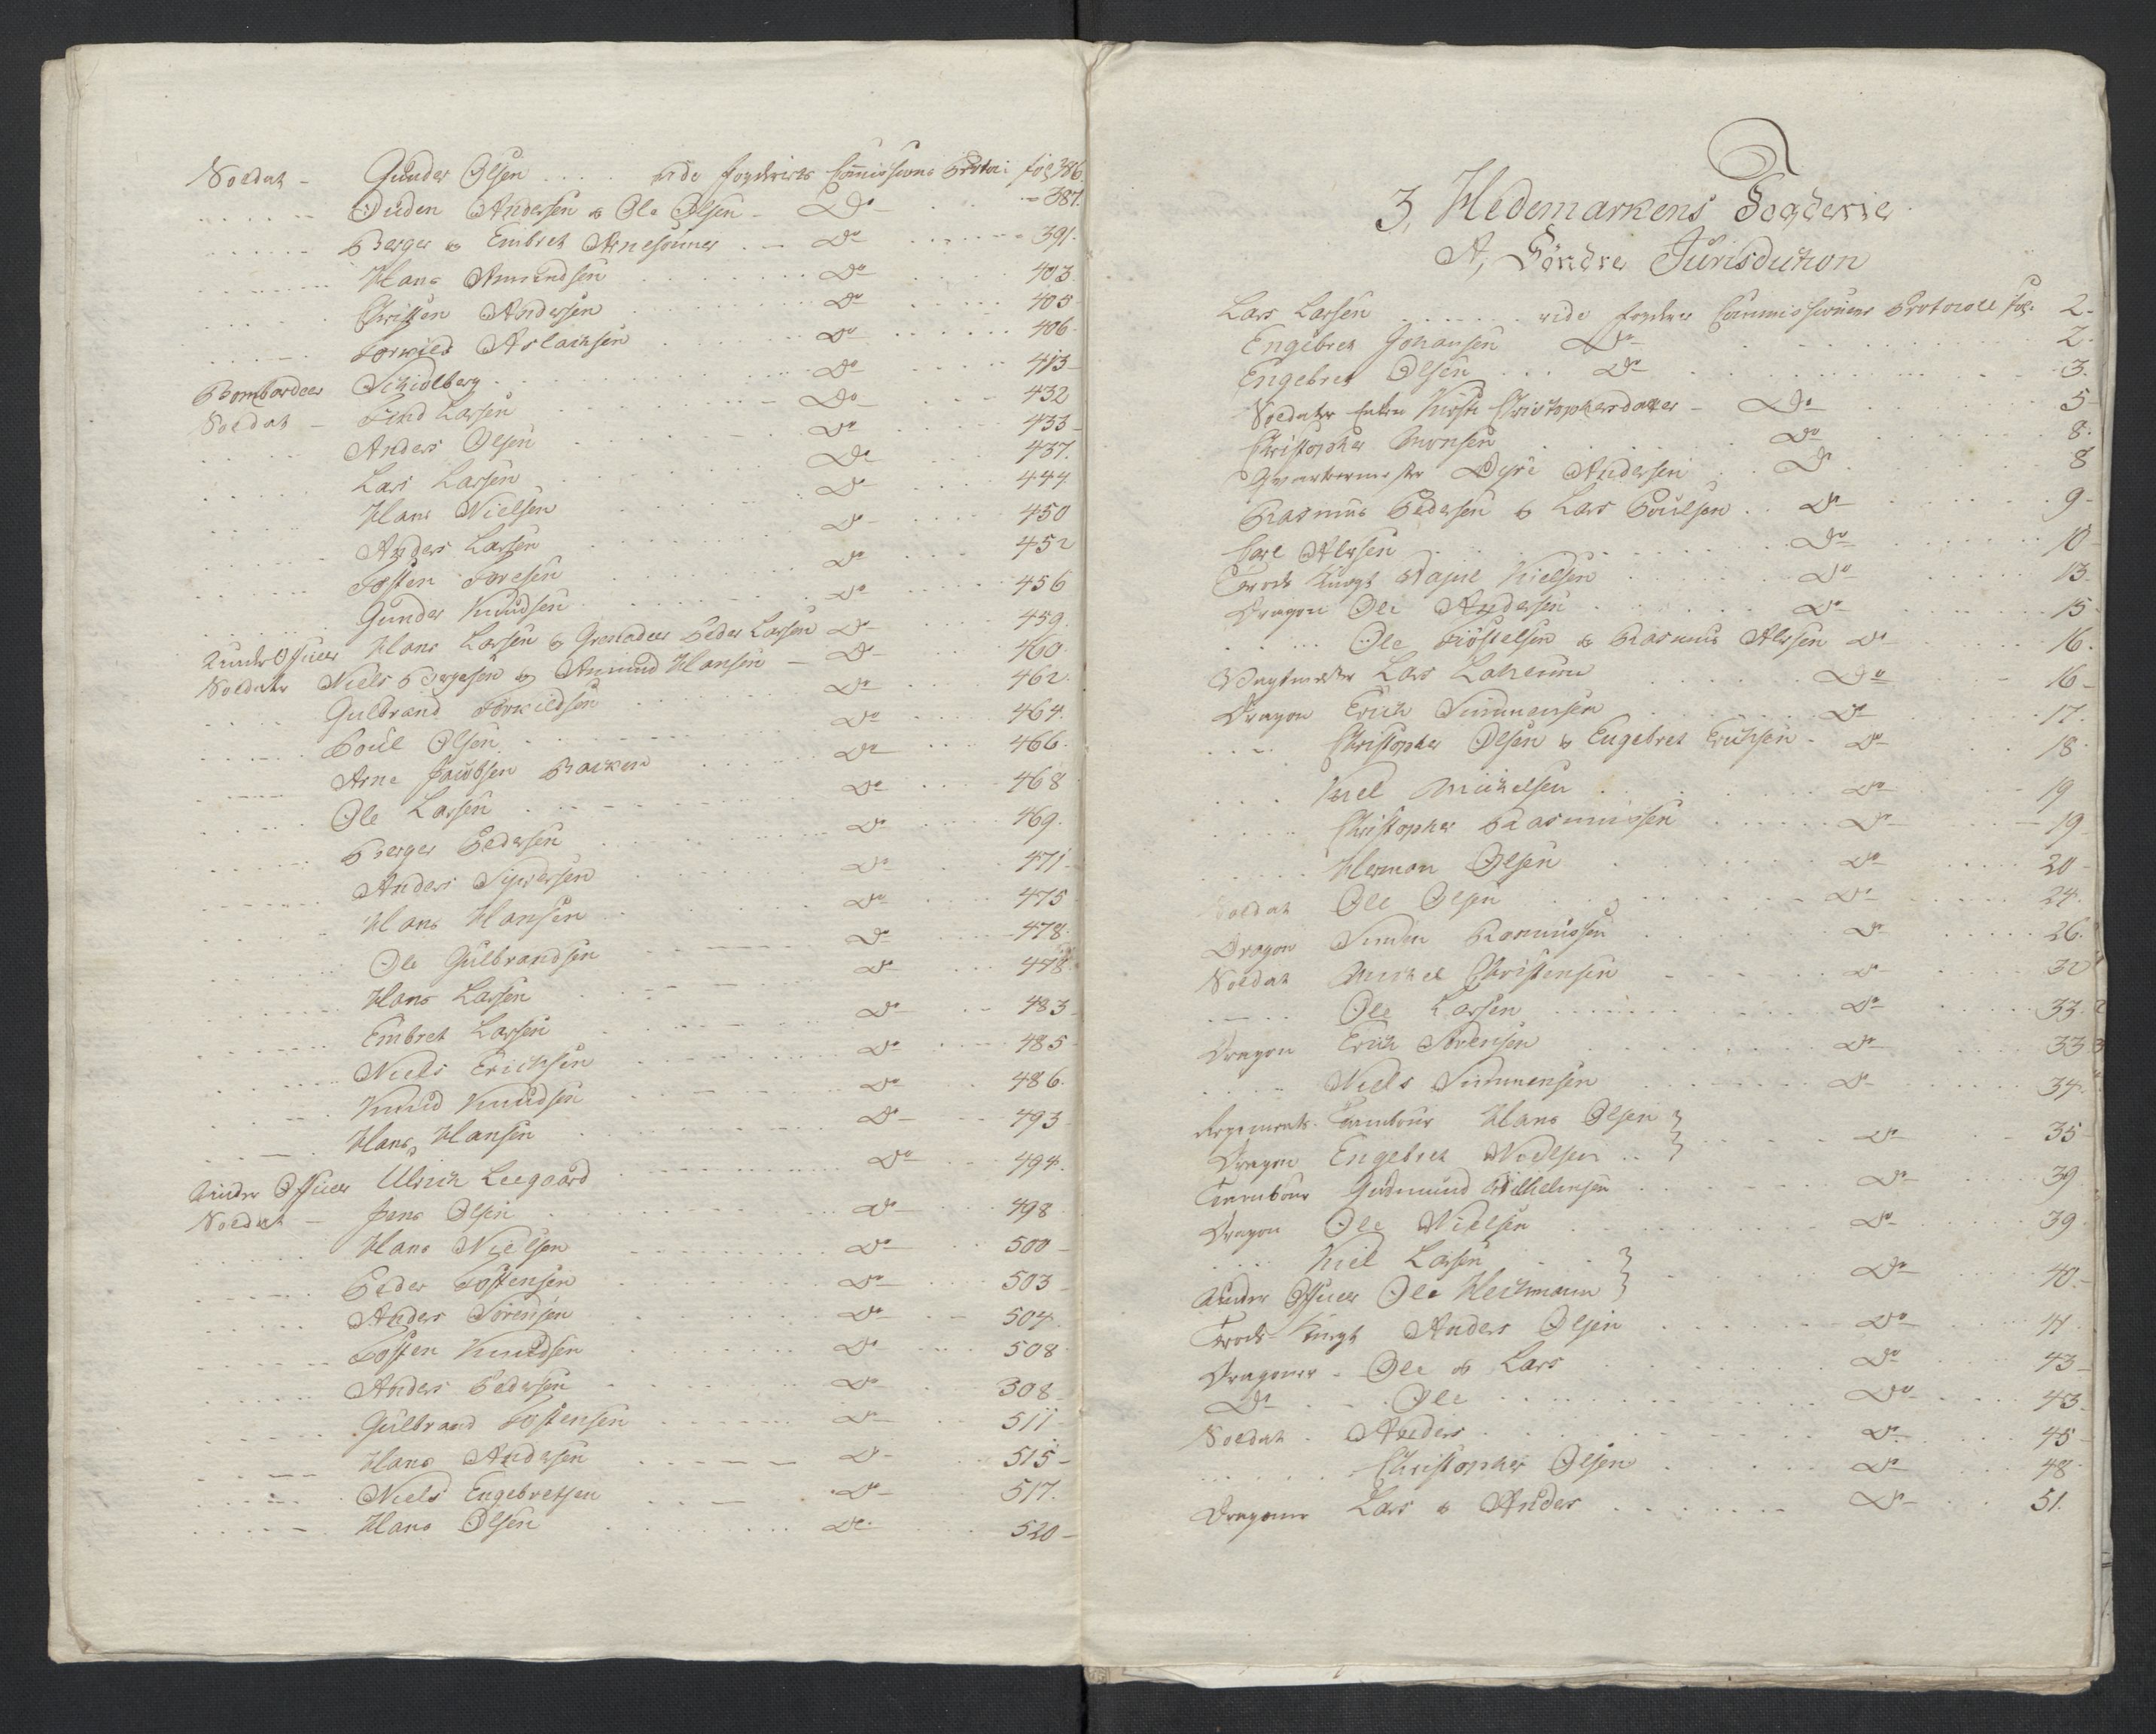 Soldat – Gunder Olsen . . . . vide Commissions Protoc: fol 386
Auden Andersen & Ole Olsen – Do – 387.
Berger & Embret Arnesønner . – Do 391.
Hans Amundsen Do 403
Christen Andersen Do 405
Torkild Aslachsen Do 406.
Bombardeer Schiolberg Do 413
Soldat – Find Larsen Do 432
Anders Olsen Do 433
Lars Larsen Do 437.
Hans Nielsen Do 444
Anders Larsen Do 450
Tosten Toresen Do 452
Gunder Knudsen Do 456
Under Officer Hans Larsen & Grenadeer Peder Larsen Do 459.
Soldater Niels Bergesen og Amund Hansen – Do 460.
Gulbrand Torkildsen Do 462.
Poul Olsen Do 464.
Arne Jacobsen Backen Do 466.
Ole Larsen Do 468
Berger Pedersen Do 469.
Anders Siversen Do 471
Hans Hansen Do 475
Ole Gulbrandsen Do 478.
Hans Larsen Do 478
Embret Larsen Do 483
Niels Erichsen Do 485
Knud Knudsen Do 486.
Hans Hansen Do 493
Under Officer Ulrich Leegaard Do 494.
Soldat – Jens Olsen Do 498
Hans Nielsen Do 500
Peder Tostensen Do 503
Anders Sørensen Do 504
Tosten Knudsen Do 508
Anders Pedersen Do 308
Gulbrand Tostensen Do 511
Hans Andersen Do 515
Niels Engebretsen Do 517.
Hans Olsen Do 520
3, Hedemarkens Fogderie
A, Søndre Jurisdiction
Lars Larsen . . . . . vide Commissions Protocoll fol. 2.
Engebret Johansen Do 2.
Engebret Olsen . . . Do 3.
Soldater Enken Kirsti Christophersdatter – Do 5
Christopher Monsen Do 8.
Qvarteermester Andersen Do 8
Rasmus Pedersen & Lars Poulsen . . Do 9
Carl Alersen Do 10
Trods Kongt Nielsen Do 13.
Dragon Ole Andersen Do 15
Ole & Rasmus Alersen Do 16.
Vagtmester Lars Do 16
Dragon Erich Simmensen Do 17.
Christopher Olsen & Engebret Erichsen – Do 18
Kiel Michelsen Do 19
Christopher Rasmussen Do 19
Herman Olsen Do 20
Soldat Ole Olsen Do 24.
Dragon Simen Rasmussen Do 26.
Soldat Michel Christensen Do 32
Ole Larsen Do 33.
Dragon Erich Sørensen Do 33
Niels Simmensen Do 34.
Regiments Tambour Hans Olsen }
Dragon Engebret Nielsen . . } Do 35
Tambour Gudmund Wilhelmsen Do 39
Dragon Ole Nielsen Do 39
Kiel Larsen }
Under Officer Ole Heckmann } Do 40.
Trods Kongt Anders Olsen Do 41
Dragoner – Ole & Lars Do 43
Do Ole Do 43
Soldat . Anders Do 45
Christopher Olsen Do 48
Dragoner Lars & Anders Do 51.